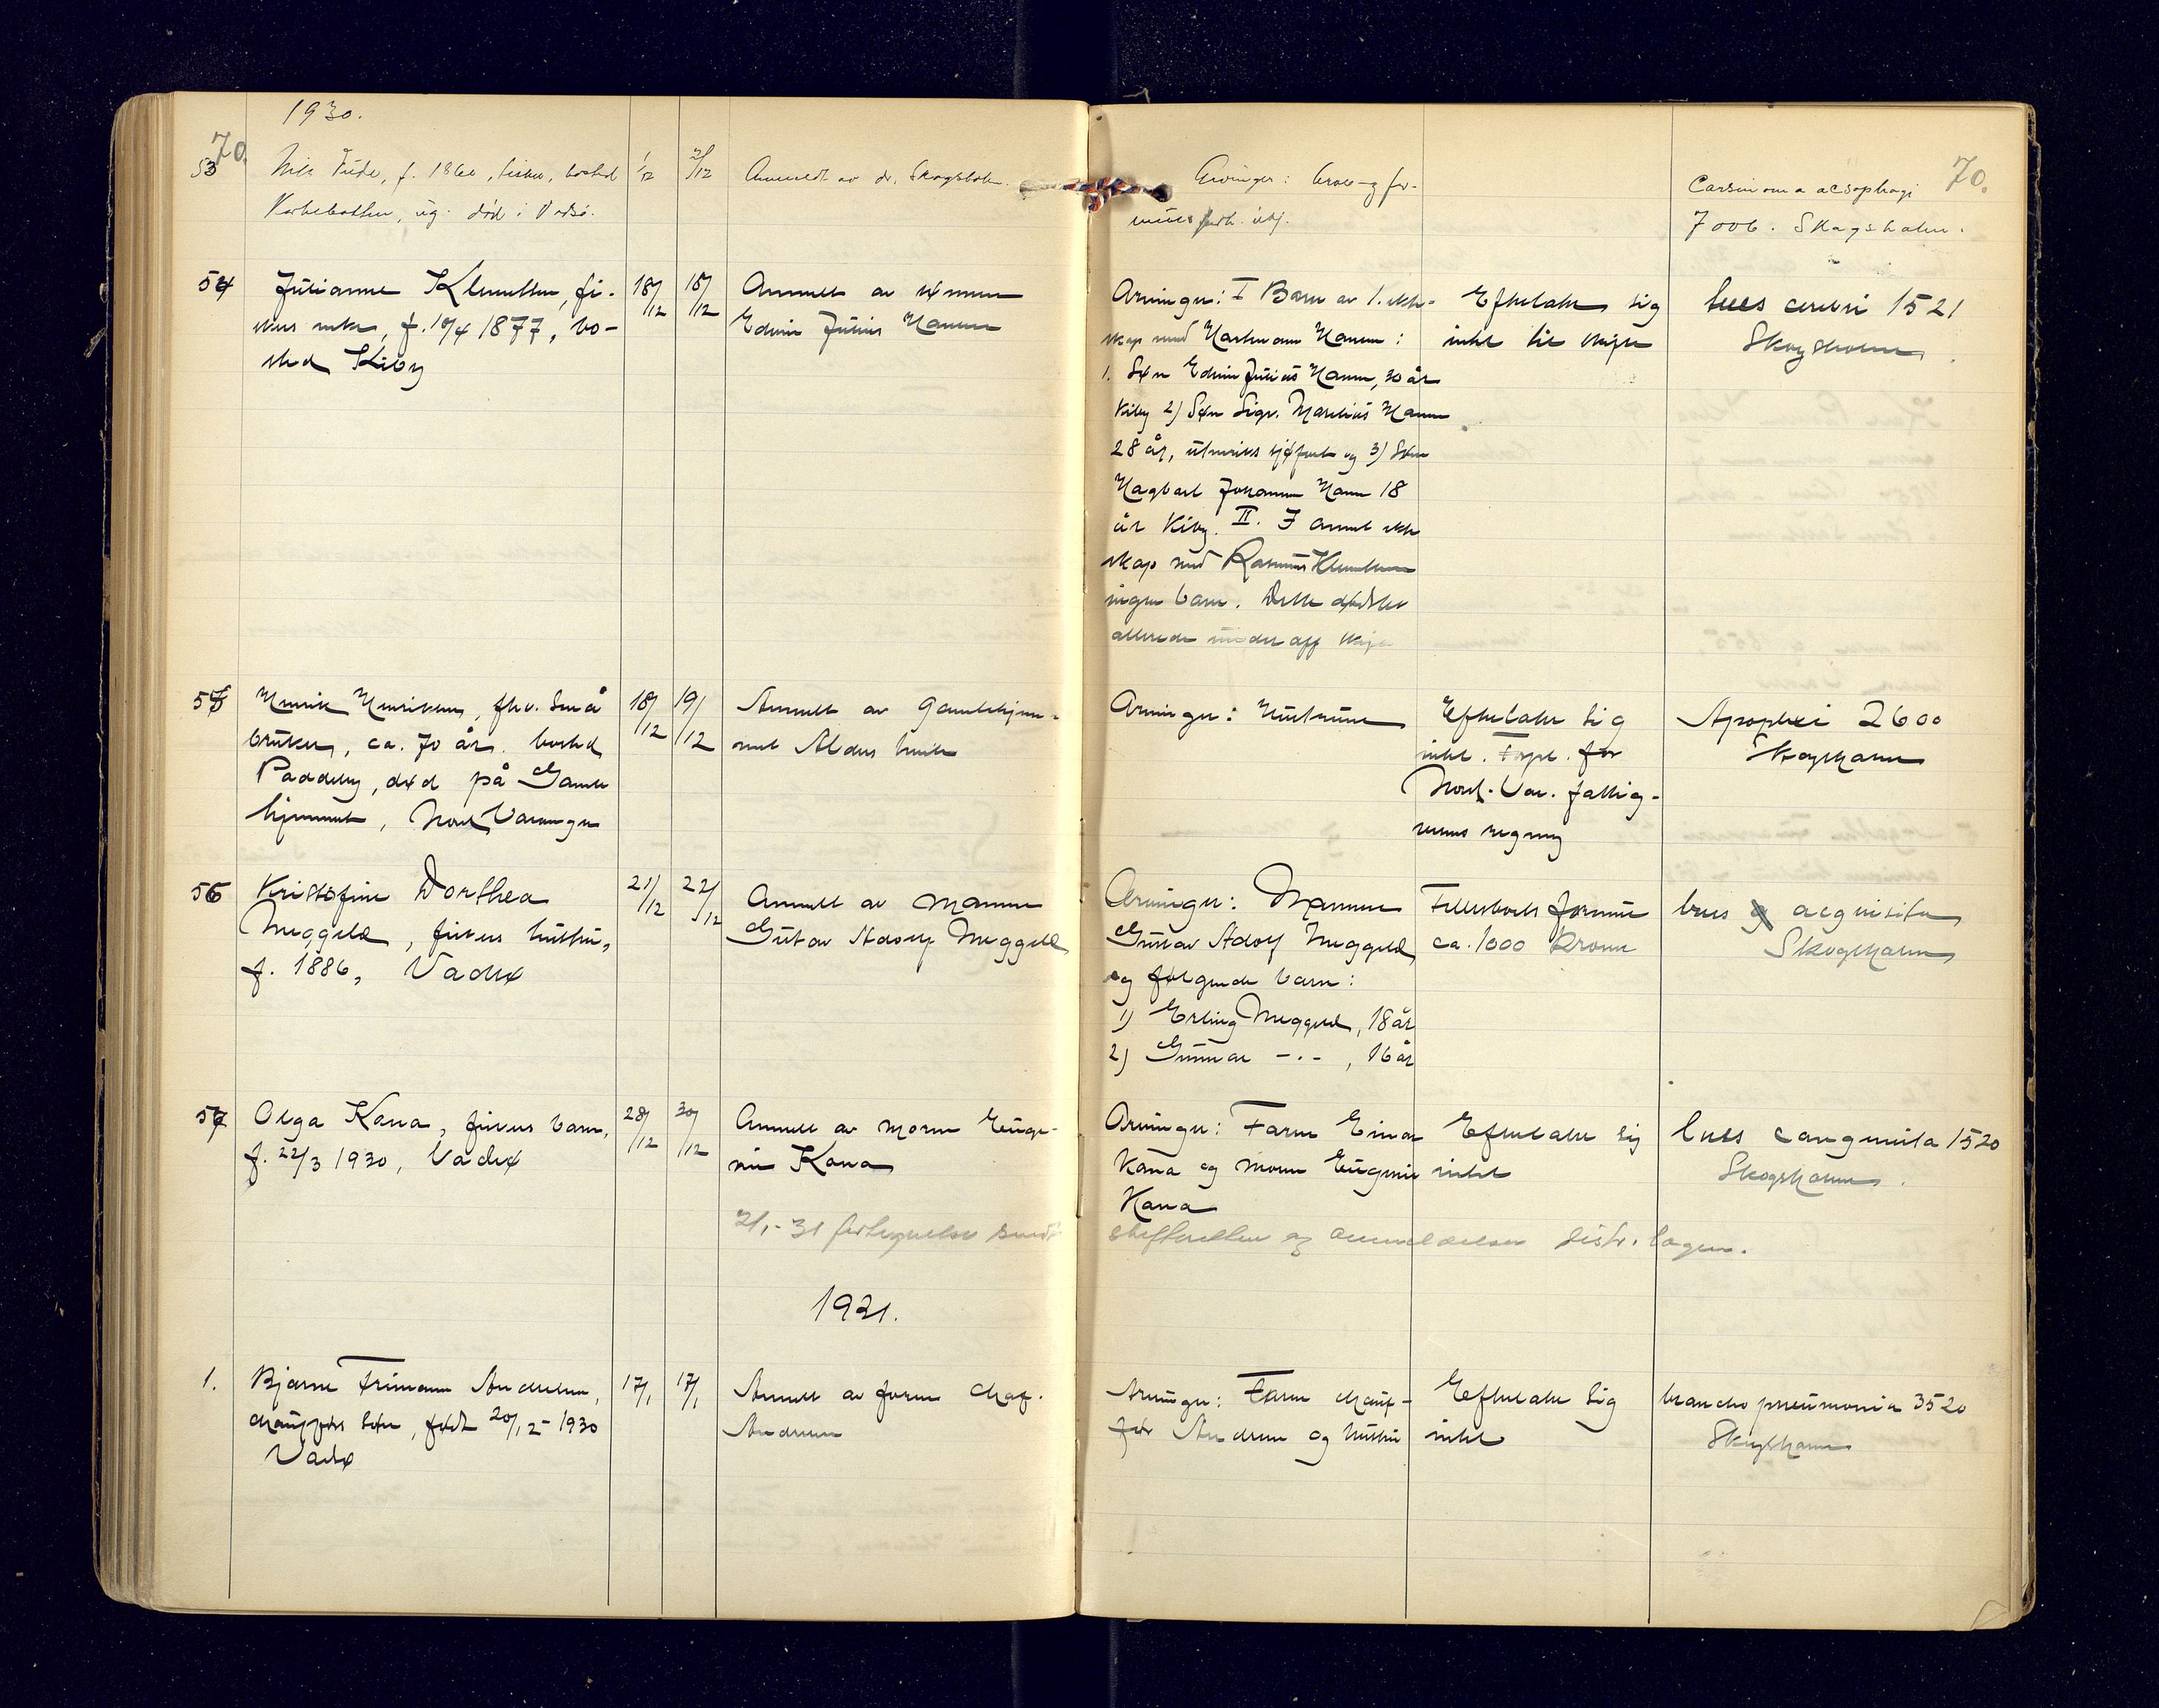 1930.
70.
70.
53
Nils f. 1860, fisker, bosted
ug. død i Vadsø.
1/12
2/12
Anmeldt av dr. Skogsholm.
Arvinger:
Carsinoma aesophagi
7006. Skogsholm.
54
Julianne Klemetsen, fi-
skers enke, f. 10/4 1877, bo-
sted Kiby
18/12
18/12
Anmeldt av sønnen
Edvin Julius Hansen
Arvinger: I Barn av 1. ekte-
skap med Hartmann Hansen:
1. Søn Edvin Julius Hansen, 30 år
Kiby 2) Søn Sigv. Marelius Hansen
28 år, utenriks sjøfart og 3) Søn
Hagbart Johannes Hansen 18
år Kiby. II. I annet ekte
skap med Rasmus Klemetsen
ingen barn. Dette dødsbo
allerede under off skifte
Efterlater sig
intet til skifte
lues cerebri 1521
Skogsholm
55
Henrik Henriksen, fhv. små
bruker, ca. 70 år. bosted
Paddeby, død på Gamle
hjemmet, Nord Varanger
18/12
19/12
Anmeldt av Gamlehjem-
met Alders hvile
Arvinger: Hustruen
Efterlater sig
intet. for
Nord-Var. fattig-
vesens regning
Apoplexi 2600
Skogsholm
56
Kristofine Dorthea
Meggele, fiskers hustru,
f. 1886, Vadsø
21/12
22/12
Anmeldt av mannen
Gustav Adolf Meggele
Arvinger: Mannen
Gustav Adolf Meggele
og følgende barn:
1) Erling Meggele, 18 år
2) Gunnar -.- , 16 år
Fellesboets formue
ca. 1000 kroner
lues acquisita
Skogsholm
57
Olga Kana, fiskers barn,
f. 22/3 1930, Vadsø
28/12
30/12
Anmeldt av moren Euge-
nie Kana
Arvinger: Faren Einar
Kana og moren Eugenie
Kana
Efterlater sig
intet
lues congenita 1520
Skogsholm.
2/1-31 fortegnelse sendt skifteretten og anmeldelser distr. lægen.
1931.
1.
Bjarne Frimann Andresen,
chaufførs søn, født 20/12-1930
Vadsø
17/1
17/1
Anmeldt av faren Chauf.
Andresen
Arvinger: Faren chauf-
før Andresen og hustru
Efterlater sig
intet
broncho pneumonia 3520
Skogsholm